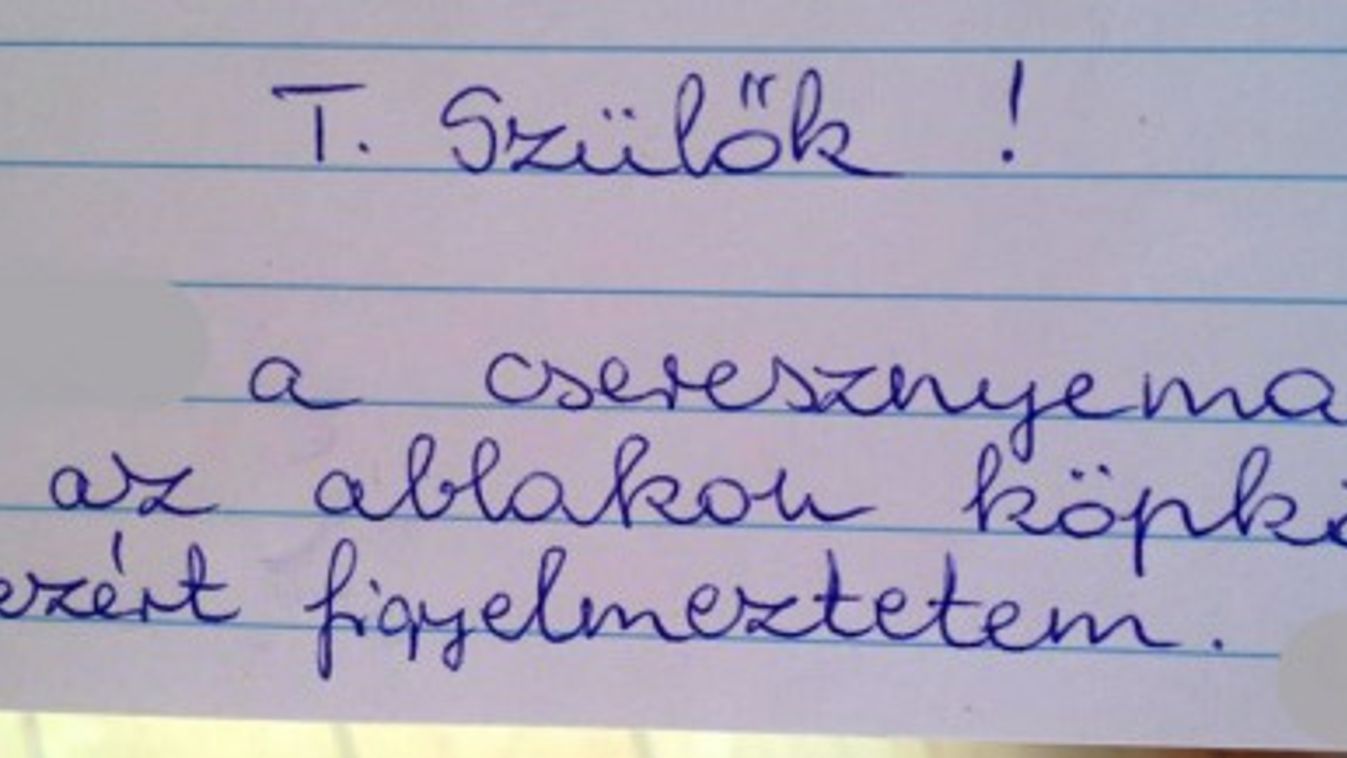 T. Szülők !
a cseresznyema
az ablakon köpkö
ezért figyelmeztetem.